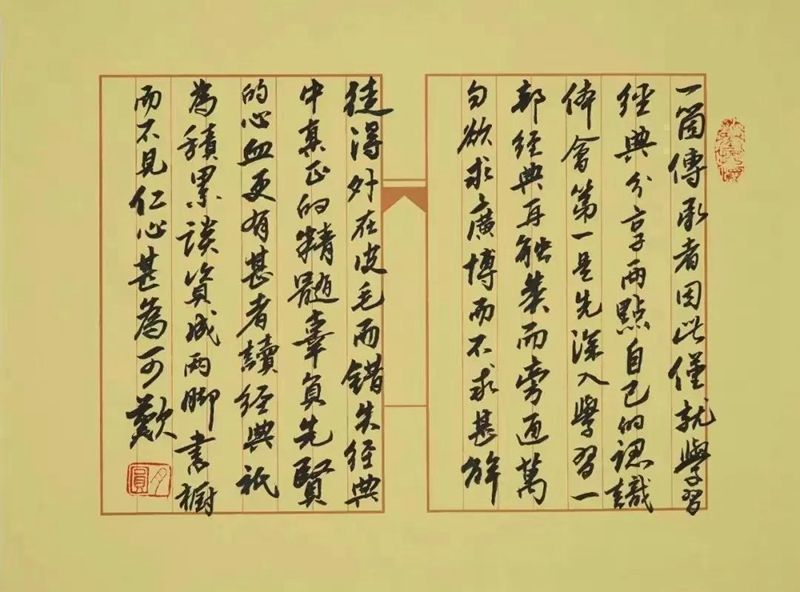 一箇傳承者因此僅就學習
經典分享兩點自己的認識
体會第一是先深入學習一
部經典再触类而旁通萬
勿欲求廣博而不求甚解
徒得外在皮毛而錯失經典
中真正的精髓辜負先賢
的心血更有甚者讀經典祇
為積累談資成兩脚書橱
而不見仁心甚為可歎